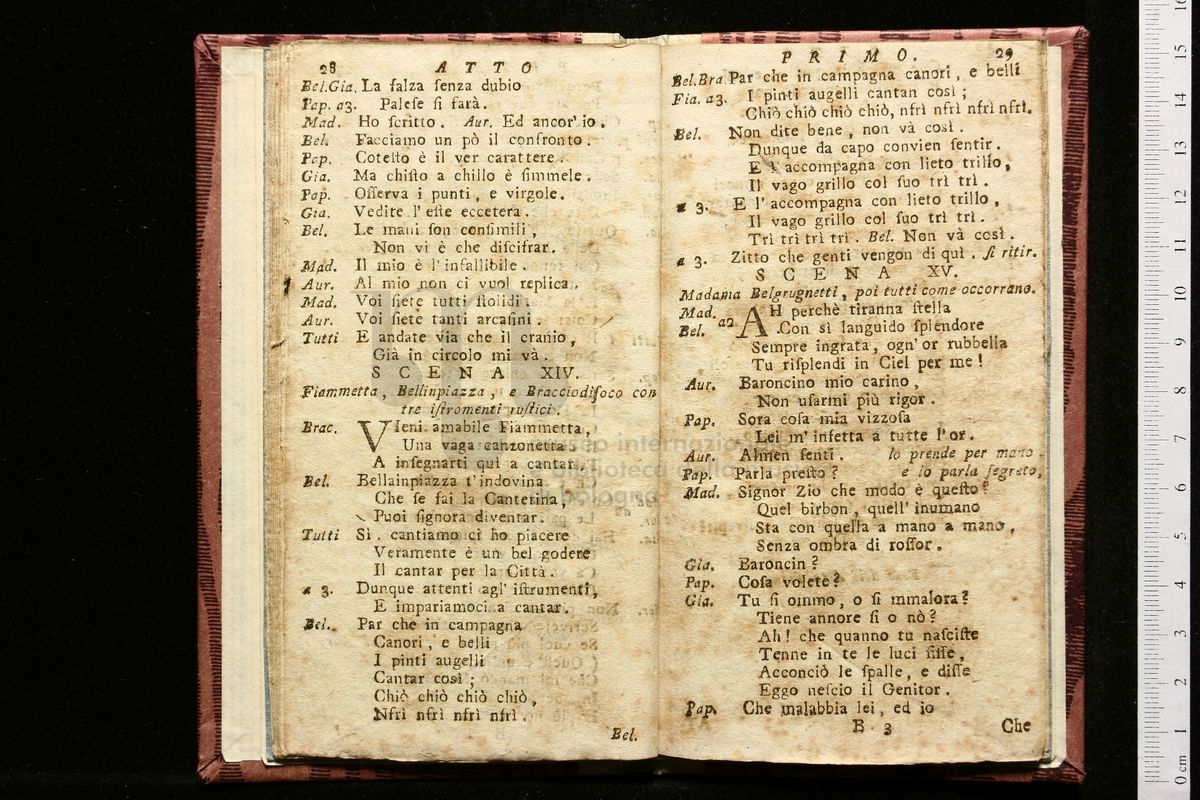 28 ATTO
Bel.Gia. La falza ſenza dubio
Pap. a3. Paleſe ſi farà.
Mad. Ho ſcritto. Aur. Ed ancor' io.
Bel. Facciamo un pò il confronto.
Pap. Coteſto è il ver carattere.
Gia. Ma chiſto a chillo è ſimmele.
Pap. Oſſerva i punti, e virgole.
Gia. Vedite l' eſte eccetera.
Bel. Le mani ſon conſimili,
Non vi è che diſcifrar.
Mad. Il mio è l' infallibile.
Aur. Al mio non ci vuol replica.
Mad. Voi ſiete tutti ſtolidi.
Aur. Voi ſiete tanti arcaſini.
Tutti E andate via che il cranio,
Già in circolo mi và.
SCENA XIV.
Fiammetta, Bellinpiazza, e Bracciodifoco con
tre iſtromenti ruſtici.
Brac. VIeni amabile Fiammetta,
Una vaga canzonetta
A inſegnarti quì a cantar.
Bel. Bellainpiazza t'indovina
Che ſe fai la Canterina,
Puoi ſignora diventar.
Tutti Sì. cantiamo ci ho piacere
Veramente è un bel godere
Il cantar per la Città.
a 3. Dunque attenti agl' iſtrumenti,
E impariamoci a cantar.
Bel. Par che in campagna
Canori, e belli
I pinti augelli
Cantar così;
Chiò chiò chiò chiò,
Nfrì nfrì nfrì nfrì.
Bel.
PRIMO. 29
Bel.Bra. Par che in campagna canori, e belli
Fia. a3. I pinti augelli cantan così;
Chiò chiò chiò chiò, nfrì nfrì nfrì nfrì.
Bel. Non dite bene, non và così.
Dunque da capo convien ſentir.
E l' accompagna con lieto trillo,
Il vago grillo col ſuo trì trì.
a 3. E l' accompagna con lieto trillo,
Il vago grillo col ſuo trì trì.
Trì trì trì trì. Bel. Non và così.
a 3. Zitto che genti vengon di quì. ſi ritir.
SCENA XV.
Madama Belgrugnetti, poi tutti come occorrano.
Mad. AH perchè tiranna ſtella
Bel. a2. Con sì languido ſplendore
Sempre ingrata, ogn' or rubbella
Tu riſplendi in Ciel per me!
Aur. Baroncino mio carino,
Non uſarmi più rigor.
Pap. Sora coſa mia vizzoſa
Lei m' infetta a tutte l' or.
Aur. Almen ſenti. lo prende per mano.
Pap. Parla preſto? e lo parla ſegreto.
Mad. Signor Zio che modo è queſto?
Quel birbon, quell' inumano
Sta con quella a mano a mano,
Senza ombra di roſſor.
Gia. Baroncin?
Pap. Coſa volete?
Gia. Tu ſi ommo, o ſi mmalora?
Tiene annore ſi o nò?
Ah! che quanno tu naſciſte
Tenne in te le luci fiſſe,
Acconciò le ſpalle, e diſſe
Eggo neſcio il Genitor.
Pap. Che malabbia lei, ed io
B 3 Che